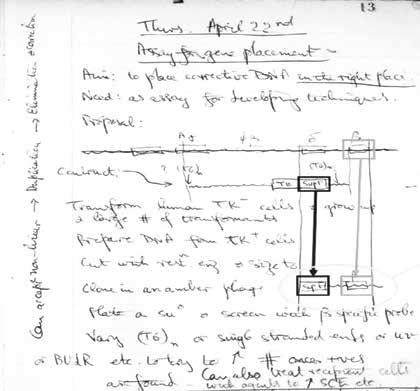 13
Thurs. April 22nd
Assay for gene placement ~
Aim: to place corrective DNA in the right place.
Need: as assay for developing techniques.
Proposal:
Aγ ψβ δ β
Construct: ? (TG)n (TG)n
TK Sup F
Transform human TK⁻ cells & grow up
a large # of transformants
Prepare DNA from TK⁺ cells
Cut with restn enz & size to
Clone in an amber phage
Sup F
Plate a su° & screen with β specific probe
Vary (TG)n or single stranded ends or uv
or BUdR etc. to try to ↑ # once +ves
are found - Can also treat recipient cells
with agents to ↑ SCE etc.
Can accept non-linear → Duplication → Elimination & correction